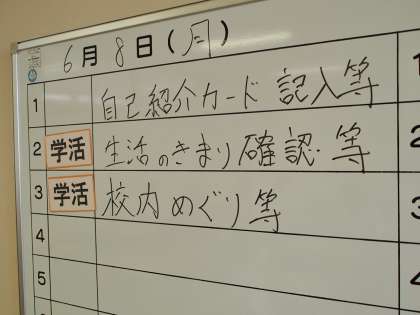 6月8日(月)
1 自己紹介カード 記入等 1
2 学活 生活のきまり確認・等 2
3 学活 校内めぐり等 3
4 4
5